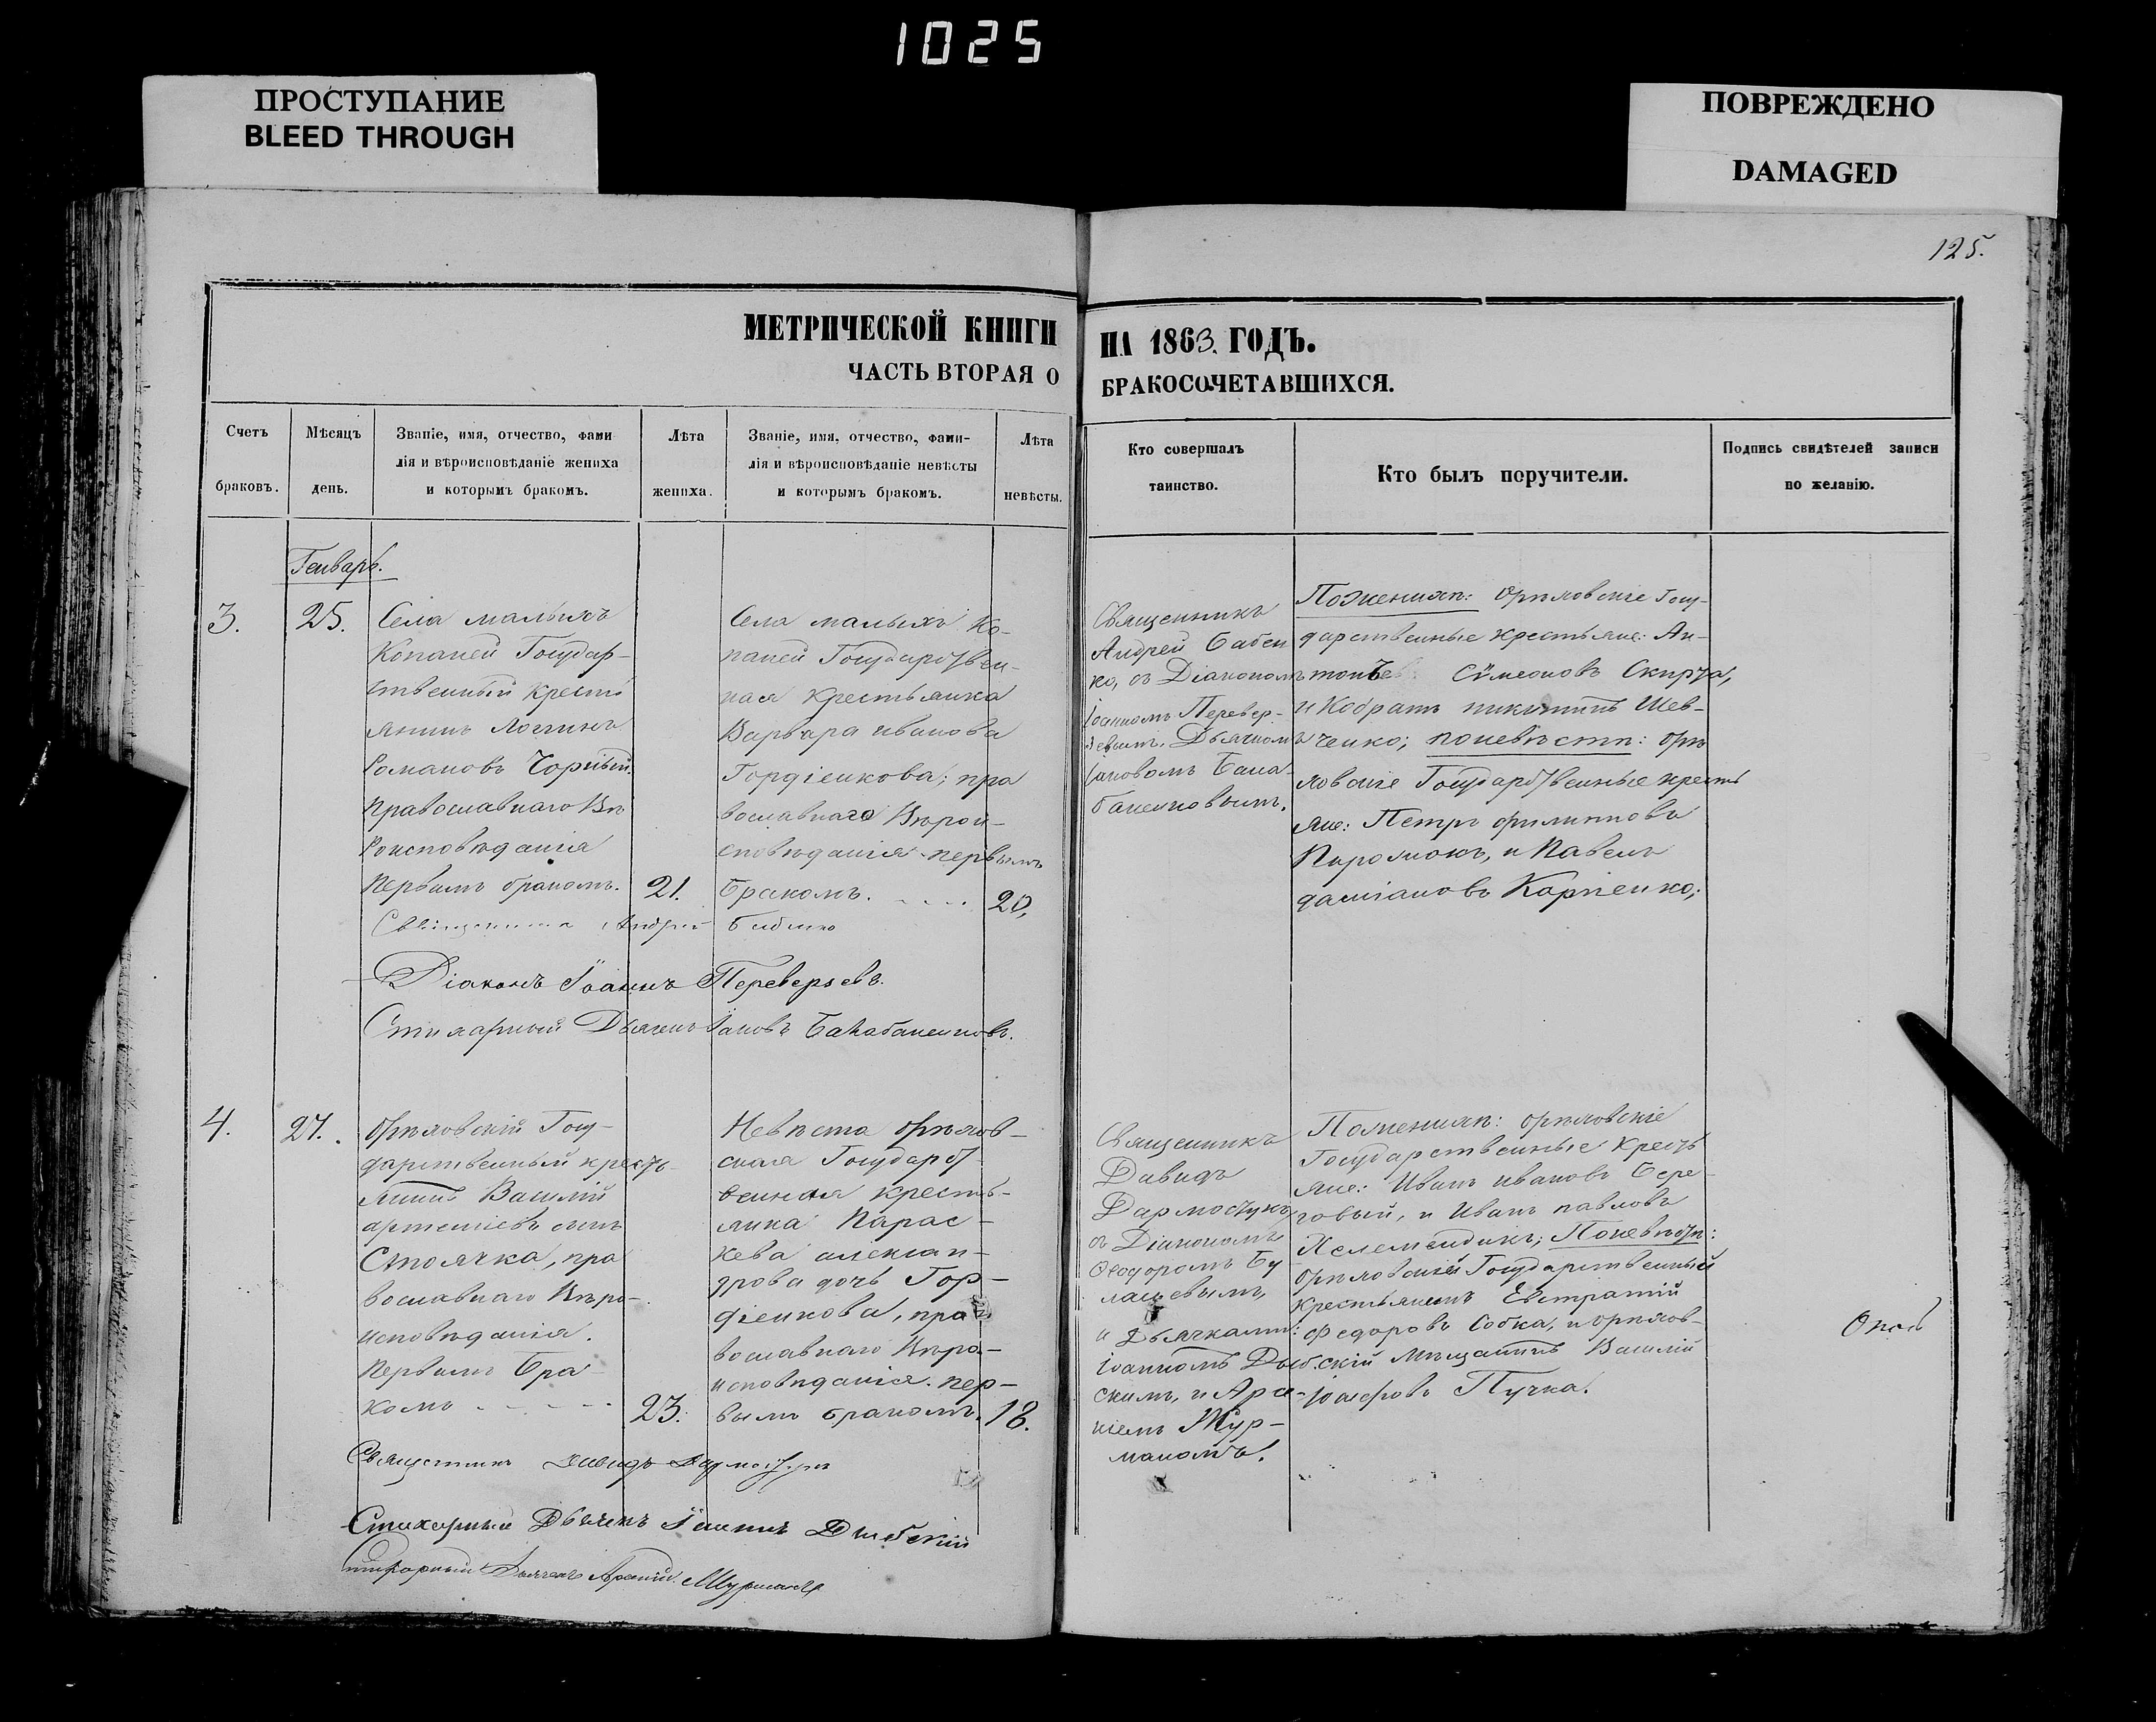 1025
ПРОСТУПАНИЕ
BLEED THROUGH
ПОВРЕЖДЕНО
DAMAGED
125.
МЕТРИЧЕСКОЙ КНИГИ
НА 1863. ГОДЪ.
ЧАСТЬ ВТОРАЯ О
БРАКОСОЧЕТАВШИХСЯ.
Счетъ
браковъ.
Мѣсяцъ
день.
Званіе, имя, отчество, фами
лія и вѣроисповѣданіе жениха
и которымъ бракомъ.
Лѣта
жениха.
Званіе, имя, отчество, фами-
лія и вѣроисповѣданіе невѣсты
и которымъ бракомъ.
Лѣта
невѣсты.
Кто совершалъ
таинство.
Кто былъ поручители.
Подпись свидѣтелей записи
по желанію.
Генварь.
3.
25.
Села малыхъ
Копаней Государ-
ственный крестъ
янинъ Логинъ
Романовъ Чорный.
православнаго Вѣ
роисповѣданія
первымъ бракомъ.
21.
Села малыхъ Ко-
паней Государствен-
ная крестьянка
Варвара иванова
Гордіенкова; пра
вославнаго Вѣрои-
сповѣданія первымъ
бракомъ.
20,
Священникъ
Андрей Бабен
ко, съ Діакономъ
Іоанномъ Перевер-
зевымъ, Дьячкомъ
Іаковомъ
Поженихѣ: Орѣховскіе Госу-
дарственные крестьяне: Ан-
тонъ Сѵмеоновъ Скирта,
и Кодратъ никитинъ Шев-
ченко; поневѣстѣ: орѣ
ховскіе Государственные кресть
яне: Петръ филипповъ
и Павелъ
даміановъ Карпенко;
Священникъ Андрей Бабенко
Діаконъ Іоаннъ Переверзевъ.
Стихарный Дьячекъ Іаковъ
4.
27.
Орѣховскій Госу-
дарственный кресть-
янинъ Василій
артеміевъ сынъ
Столячка, пра
вославнаго Вѣро-
исповѣданія.
Первымъ бра
комъ
23.
Невѣста орѣхов-
ская Государст-
венная кресть-
янка Парас-
кева алексан-
дрова дочь Гор-
діенкова, пра
вославнаго Вѣро-
исповѣданія. пер-
вымъ бракомъ.
18.
Священникъ
Давидъ
съ Діакономъ
Ѳеодоромъ Бу
и Дьячками:
Іоанномъ Дыб.
скимъ, и Арсе-
ніемъ Жур-
маномъ.
Поженихѣ: орѣховскіе
Государственные кресть
яне: Иванъ ивановъ Бере
говый, и Иванъ павловъ
Поневѣстѣ:
орѣховскій Государственный
крестьянинъ Евстратій
Федоровъ Собка, и орѣхов-
скій Мѣщанинъ Василій
Пучка.
Священникъ Давидъ
Стихарный Дьячекъ Іоаннъ Дыбскій
Стихарный Дьячекъ Арсеній Журманъ